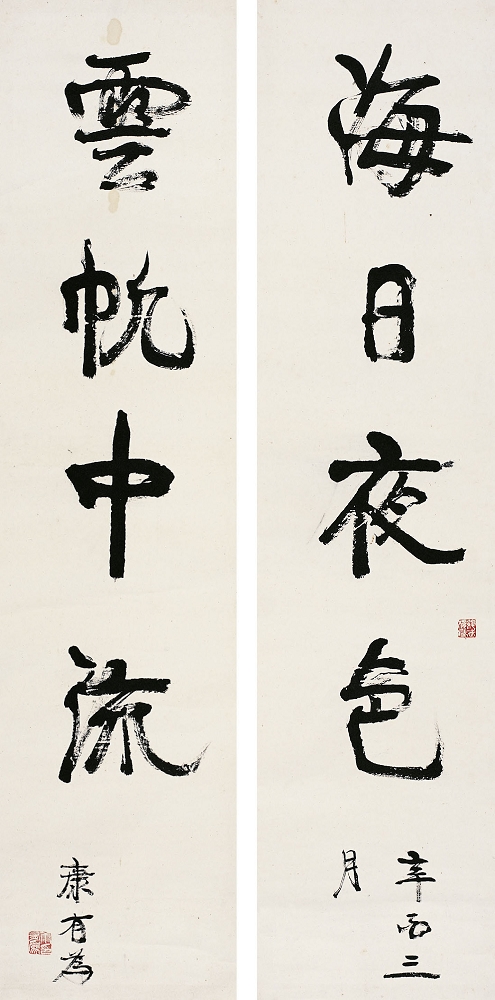 海日夜色
辛酉三
月
雲帆中流
康有為